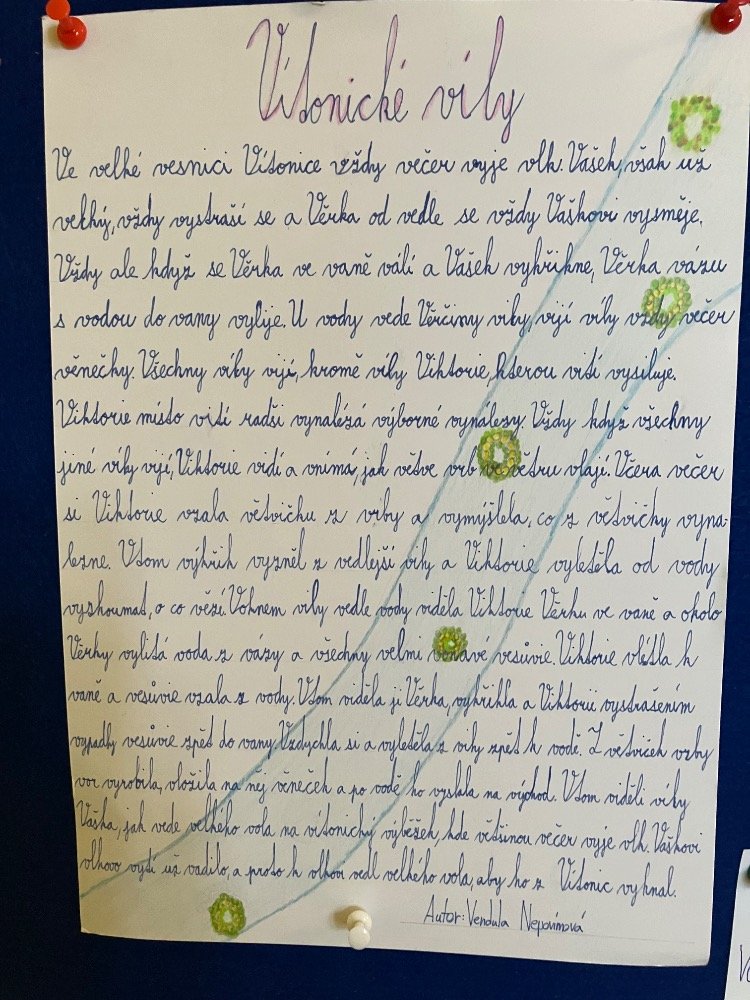 Vítonické víly
Ve velké vesnici Vítonice vždy večer vyje vlk. Vašek, však už
velký, vždy vystraší se a Věrka od vedle se vždy Vaškovi vysměje.
Vždy ale když se Věrka ve vaně válí a Vašek vykřikne, Věrka vázu
s vodou do vany vylije. U vody vede Věrčiny vily, vijí víly vždy večer
věnečky. Všechny víly vijí, kromě víly Viktorie, kterou vití vysiluje.
Viktorie místo vití radši vynalézá výborné vynálezy. Vždy když všechny
jiné víly vijí, Viktorie vidí a vnímá, jak větve vrb ve větru vlají. Včera večer
si Viktorie vzala větvičku z vrby a vymýšlela, co z větvičky vyna-
lezne. Vtom výkřik vyzněl z vedlejší vily a Viktorie vyletěla od vody
vyzkoumat, o co věží. Voknem vily vedle vody viděla Viktorie Věrku ve vaně a okolo
Věrky vylitá voda z vázy a všechny velmi voňavé vesůvie. Viktorie vlétla k
vaně a vesůvie vzala z vody. Vtom viděla ji Věrka, vykřikla a Viktorii vystrašením
vypadly vesůvie zpět do vany. Vzdychla si a vyletěla z vily zpět k vodě. Z větviček vrby
vor vyrobila, vložila na něj věneček a po vodě ho vyslala na východ. Vtom viděli víly
Vaška, jak vede velkého vola na vítonický výběžek, kde většinou večer vyje vlk. Vaškovi
vlkovo vytí už vadilo, a proto k vlkovi vedl velkého vola, aby ho z Vítonic vyhnal.
Autor: Vendula Nepovímová